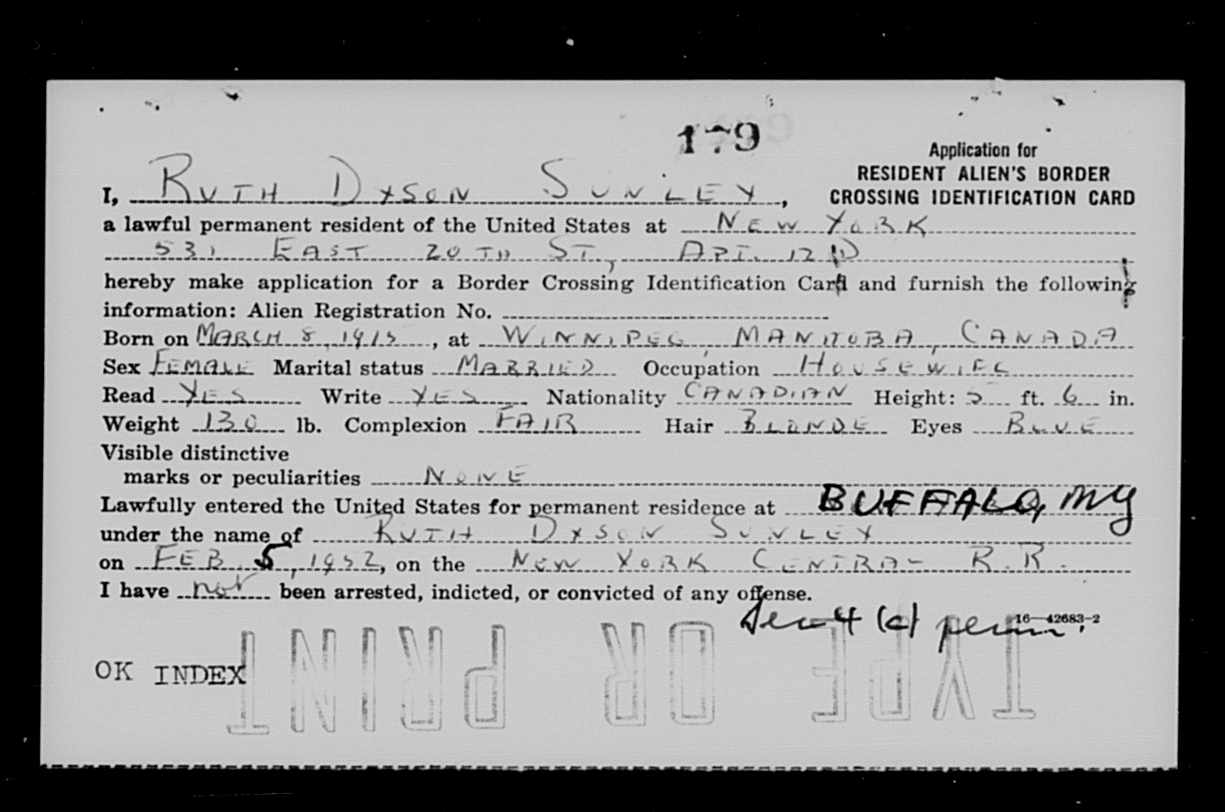 179
Application for
RESIDENT ALIEN'S BORDER
CROSSING IDENTIFICATION CARD
I, RUTH DYSON SUNLEY,
a lawful permanent resident of the United States at NEW YORK
531 EAST 20TH ST., APT. 12 D
hereby make application for a Border Crossing Identification Card and furnish the following
information: Alien Registration No.
Born on MARCH 8, 1915, at WINNIPEG, MANITOBA, CANADA
Sex FEMALE Marital status MARRIED Occupation HOUSEWIFE
Read YES Write YES Nationality CANADIAN Height: 5 ft. 6 in.
Weight 130 lb. Complexion FAIR Hair BLONDE Eyes BLUE
Visible distinctive
marks or peculiarities NONE
Lawfully entered the United States for permanent residence at BUFFALO, NY
under the name of RUTH DYSON SUNLEY
on FEB 5, 1952, on the NEW YORK CENTRAL R.R.
I have not been arrested, indicted, or convicted of any offense.
4 (c) 16—42683-2
OK INDEX
TYPE OR PRINT